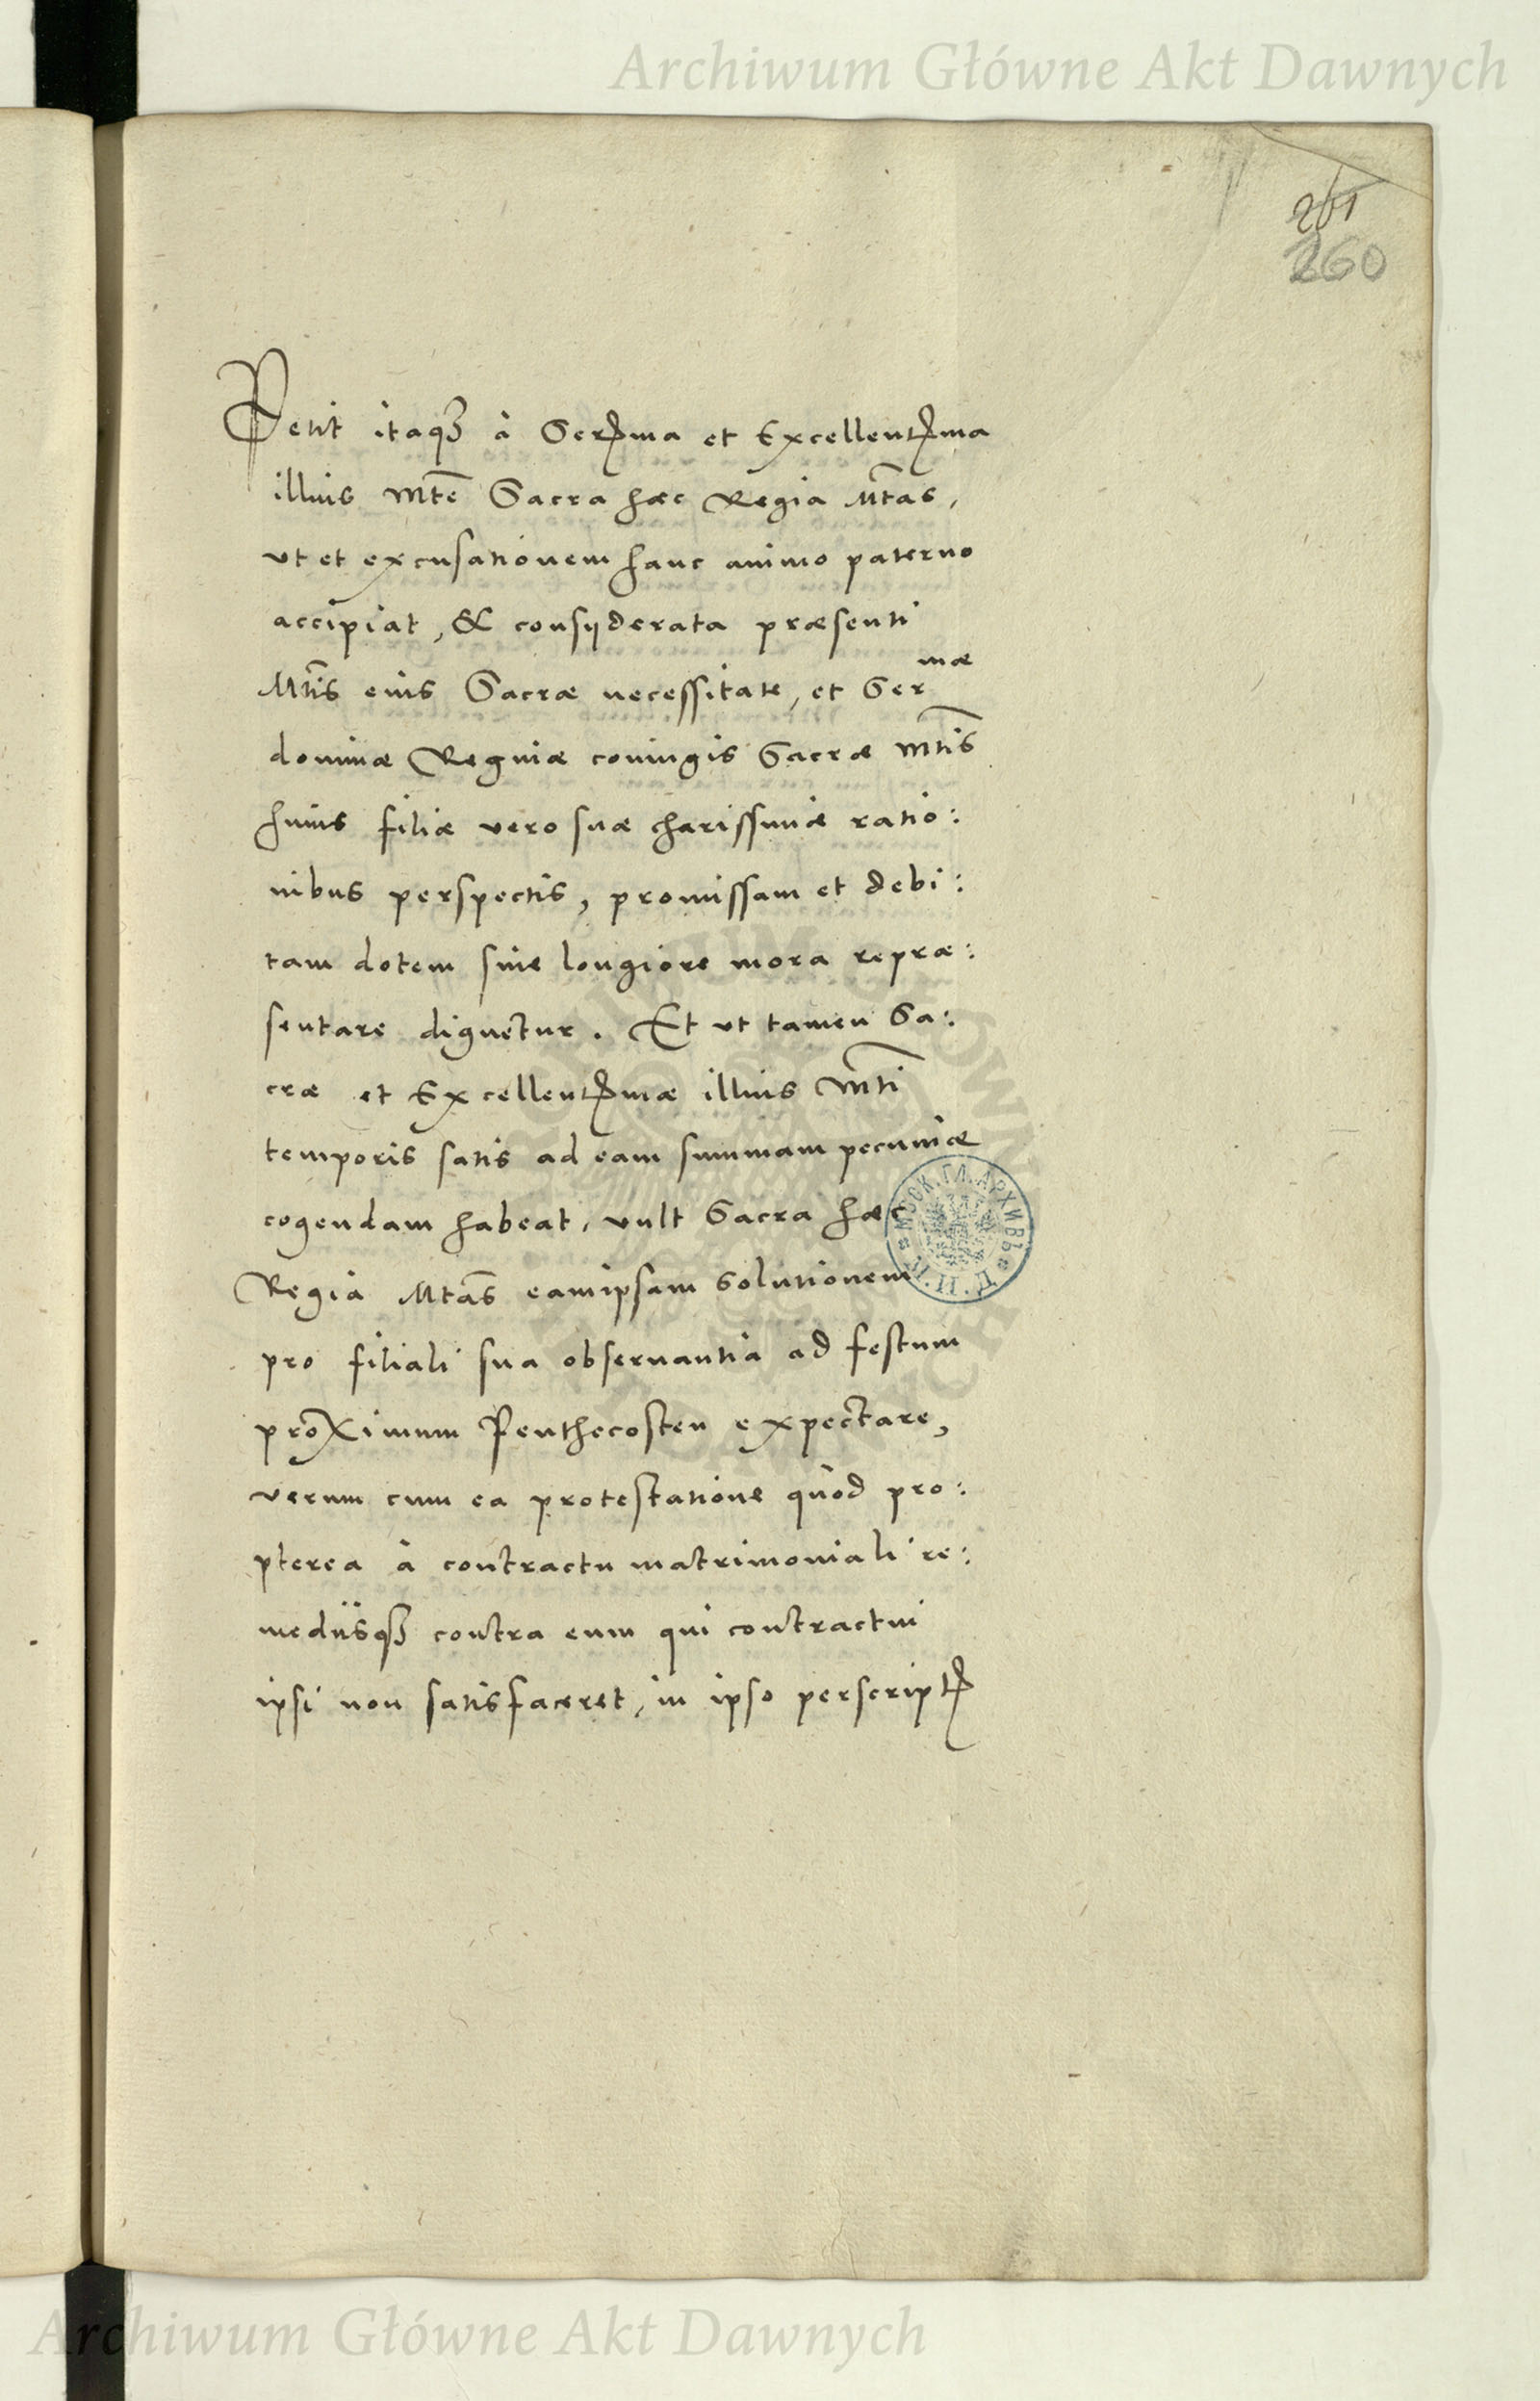 Archiwum Główne Akt Dawnych
261
260
Petit itaq3 à Serma et Excellentma
illius Mte Sacra hæc Regia Mtas,
vt et excusationem hanc animo paterno
accipiat, & consyderata præsenti
Mtis eius Sacræ necessitate, et Sermæ
dominæ Reginæ coniugis Sacræ Mtis
huius filiæ vero suæ charissimæ ratio:
nibus perspectis, promissam et debi:
tam dotem sine longiore mora repræ:
sentare dignetur. Et vt tamen Sa:
cræ et Excellentmæ illius Mti
temporis satis ad eam summam pecuniæ
cogendam habeat, vult Sacra hæc
Regia Mtas eamipsam solutionem
pro filiali sua obseruantia ad festum
proximum Penthecosten expectare,
verum cum ea protestatione quòd pro:
pterea à contractu matrimoniali re:
mediisq3 contra eum qui contractui
ipsi non satisfaceret, in ipso perscriptis
МОСК. ГЛ. АРХИВЪ
Archiwum Główne Akt Dawnych